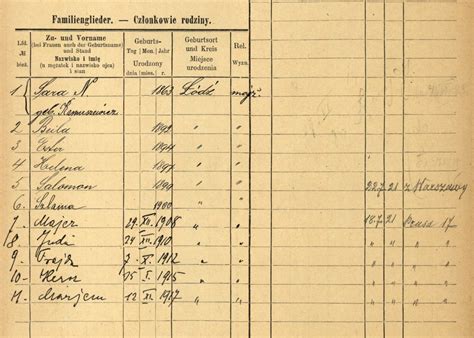 Familienglieder. — Członkowie rodziny.
Lfd. № bież. Zu- und Vorname (bei Frauen auch der Geburtsname) und Stand Nazwisko i imię (u mężatek i nazwisko ojca) i stan Geburts- Tag | Mon. | Jahr Urodzony dnia | mies. | r. Geburtsort und Kreis Miejsce urodzenia Rel. Wyzn.
1 Sara N 1863 Łódź mojż.
geb.
2 Bula 189 " "
3 Ester 189 " "
4 Helena 189 " "
5 Salomon 189 " " 22.7. 21 z Warszawy
6. Salama 1900 " "
7. Majer 29 XII. 1908 " " 18.7. 21 17
8. Juda 24 XII. 1910 " " " " " "
9. Frajda 7 X. 1912 " " " " " "
10. 25 I. 1915 " " " " "
11. Marjem 12 XI. 1917 " " " " "